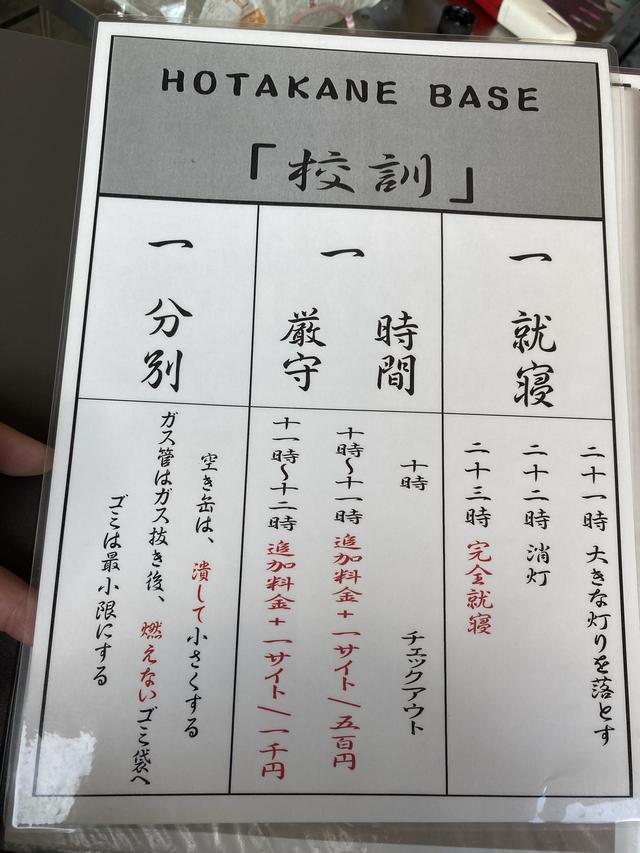 HOTAKANE BASE
「校訓」
一 就寝
二十一時 大きな灯りを落とす
二十二時 消灯
二十三時 完全就寝
一 時間
厳守
十時 チェックアウト
十時〜十一時 追加料金+一サイト/五百円
十一時〜十二時 追加料金+一サイト/一千円
一 分別
空き缶は、潰して小さくする
ガス管はガス抜き後、燃えないゴミ袋へ
ゴミは最小限にする